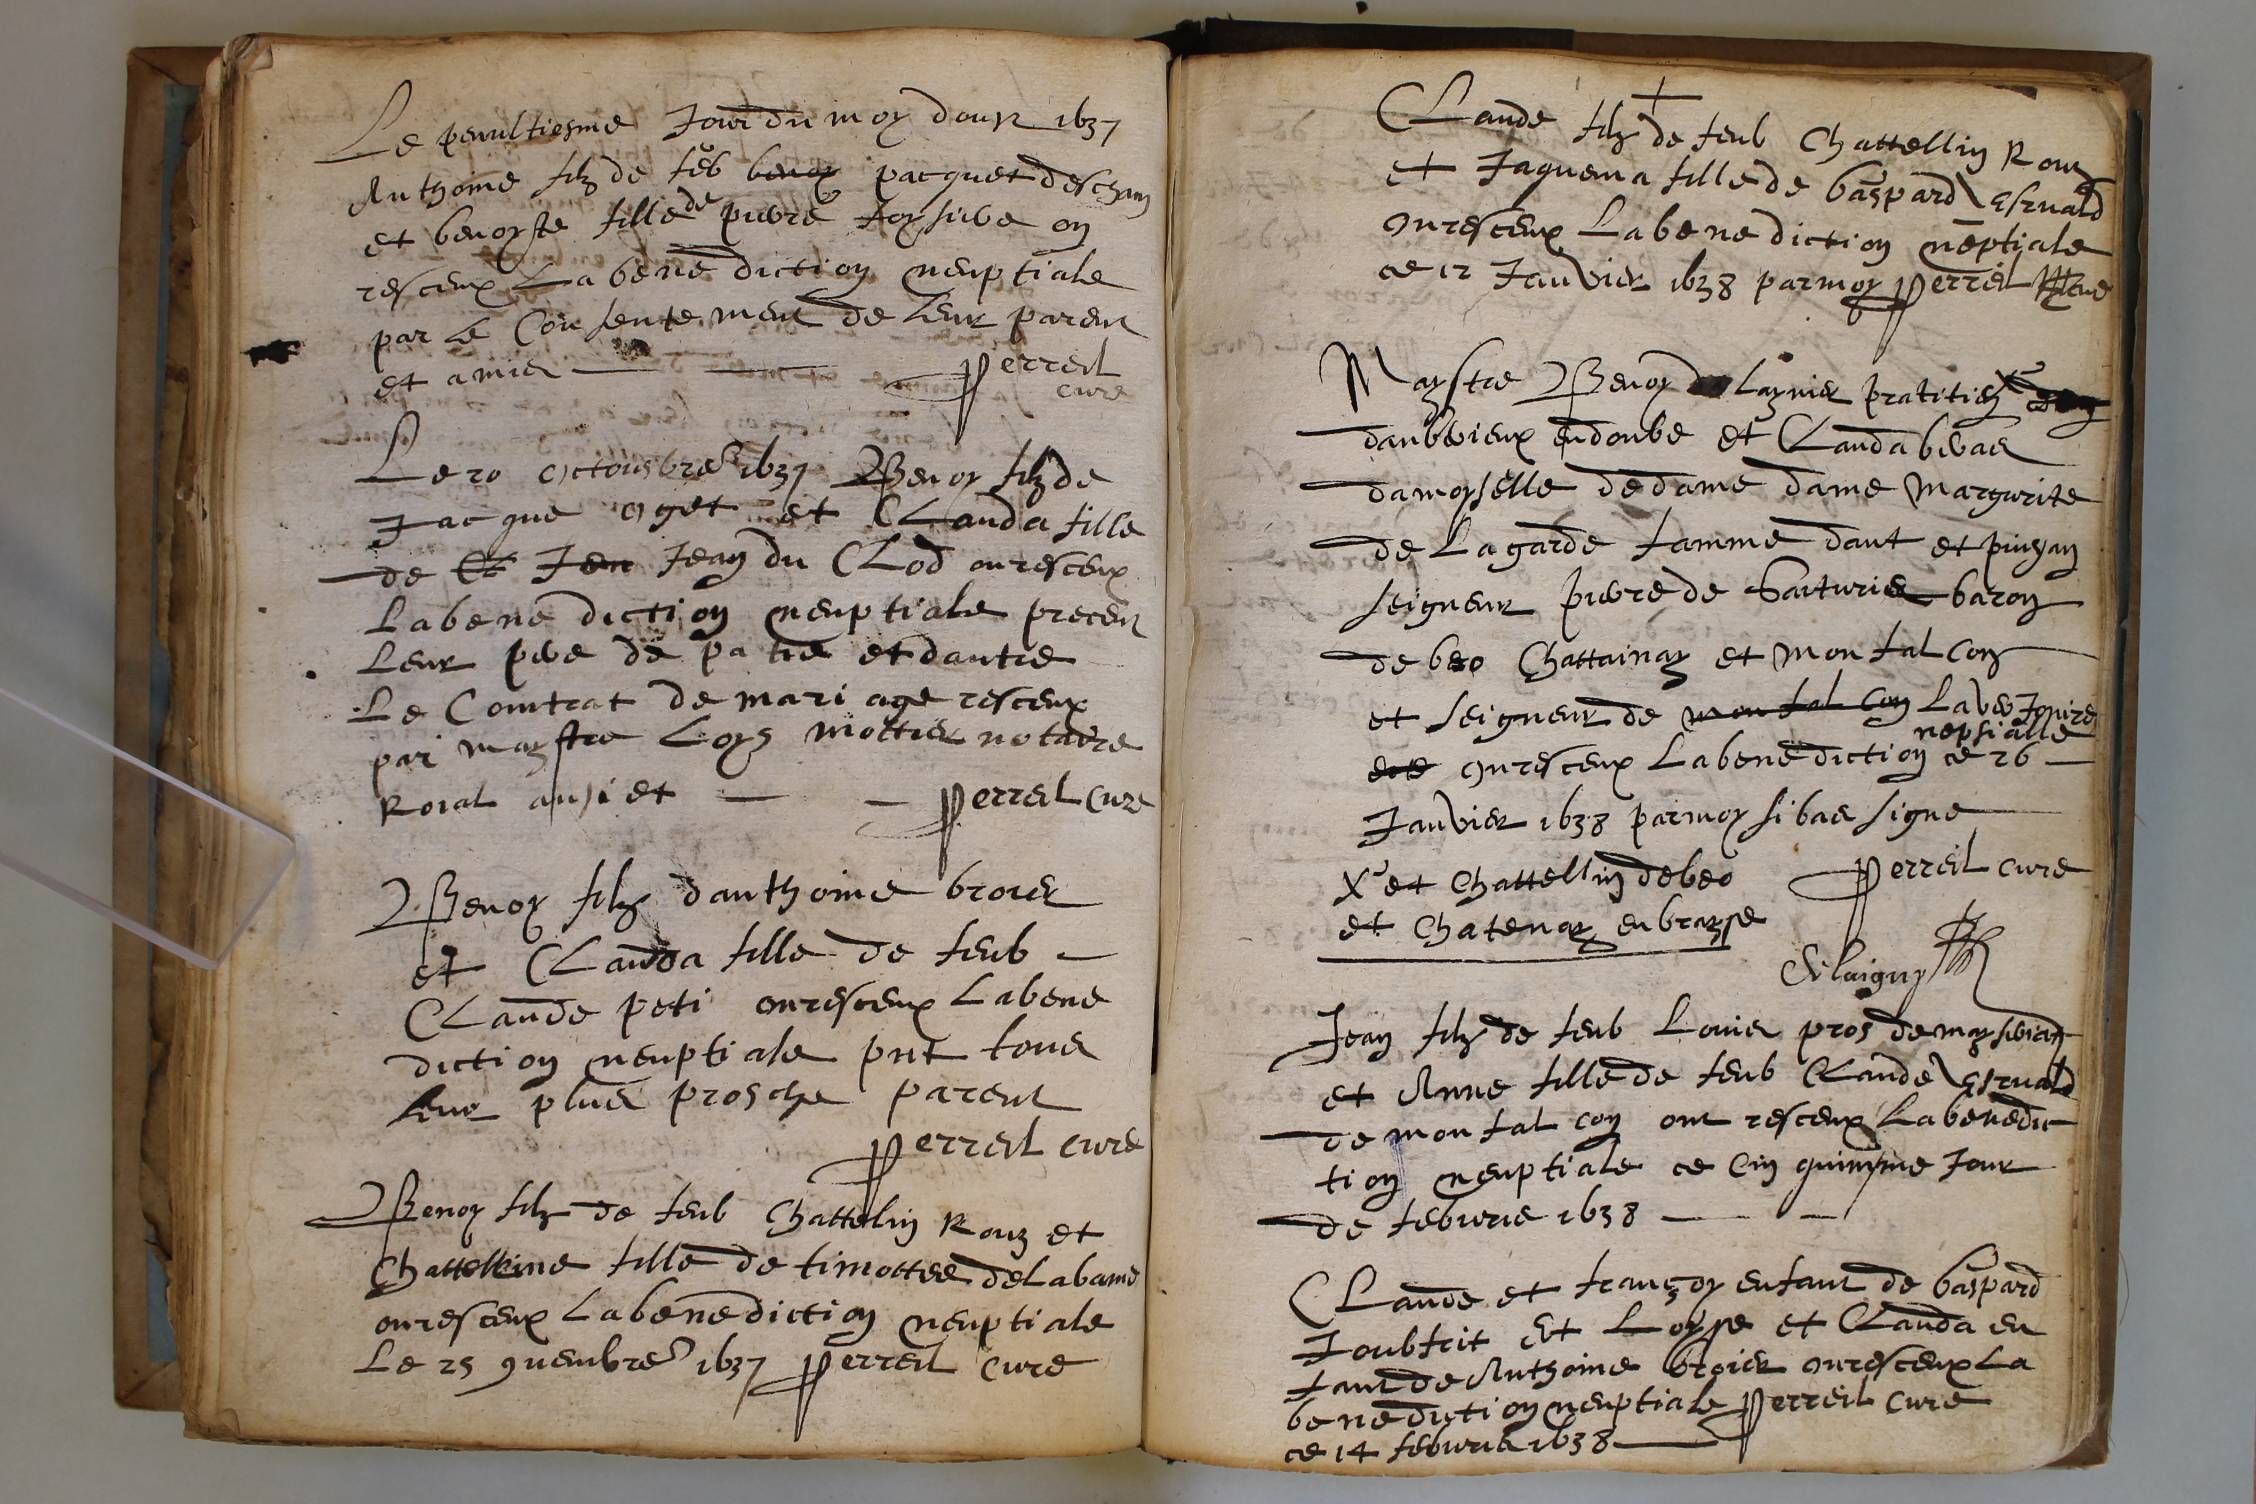 Le penultiesme Jour du moy doux 1637
Anthoine filz de feb benoy pacquet descham
et benoyste fille de pierre foysiere on
resceux La benediction neuptiale
par le Consentement de leur parent
et amies Perreil
cure
Le 20 octousbre 1637 Benoy filz de
Jacque oget et Clauda fille
de Cl Jen Jean du Clod on resceux
La benediction neuptiale precen
Leur pere de patre et dautre
Le Contrat de mariage resceux
par maystre Loys mottier notaire
Roial ausi et Perreil Cure
Benoy filz danthoine broier
et Clauda fille de feub
Claude peti on resceux La bene
diction neuptiale pnt tous
leur plus prosche parent
Perreil cure
Benoy filz de feub Chattelin Rouz et
Chattelline fille de timottee de Labame
on resceux La benediction neuptiale
Le 25 9uembre 1637 Perreil Cure
Claude filz de feub Chattellin Rouz
et Jaquema fille de Gaspard Esruald
on resceux La benediction neptiale
ce 12 Janvier 1638 par moy Perreil Cure
Maystre Benoy de Laynier pratitien
danberieux en doube et Clauda
damoyselle de dame dame Margurite
de Lagarde famme daut et puissan
seigneur pierre de Saiturier baron
de beo Chattainay et montalcon
et seigneur de montalcon La
nepsialle
on resceux La benediction ce 26
Janvier 1638 par moy si bas signe
X et Chattellin de beo Perreil cure
et Chatenay en braysse
Jean filz de feub Louies pros de marsieiat
et Anne fille de feub Claude Esruald
de montalcon ont resceux La benedic
tion neuptiale ce Cinquimme Jour
de feburie 1638
Claude et françoy enfant de Gaspard
Joubfrit Et Loyse et Clauda en
fant de Anthoine broier on resceux La
benediction neuptiale Perreil Cure
ce 14 feburie 1638